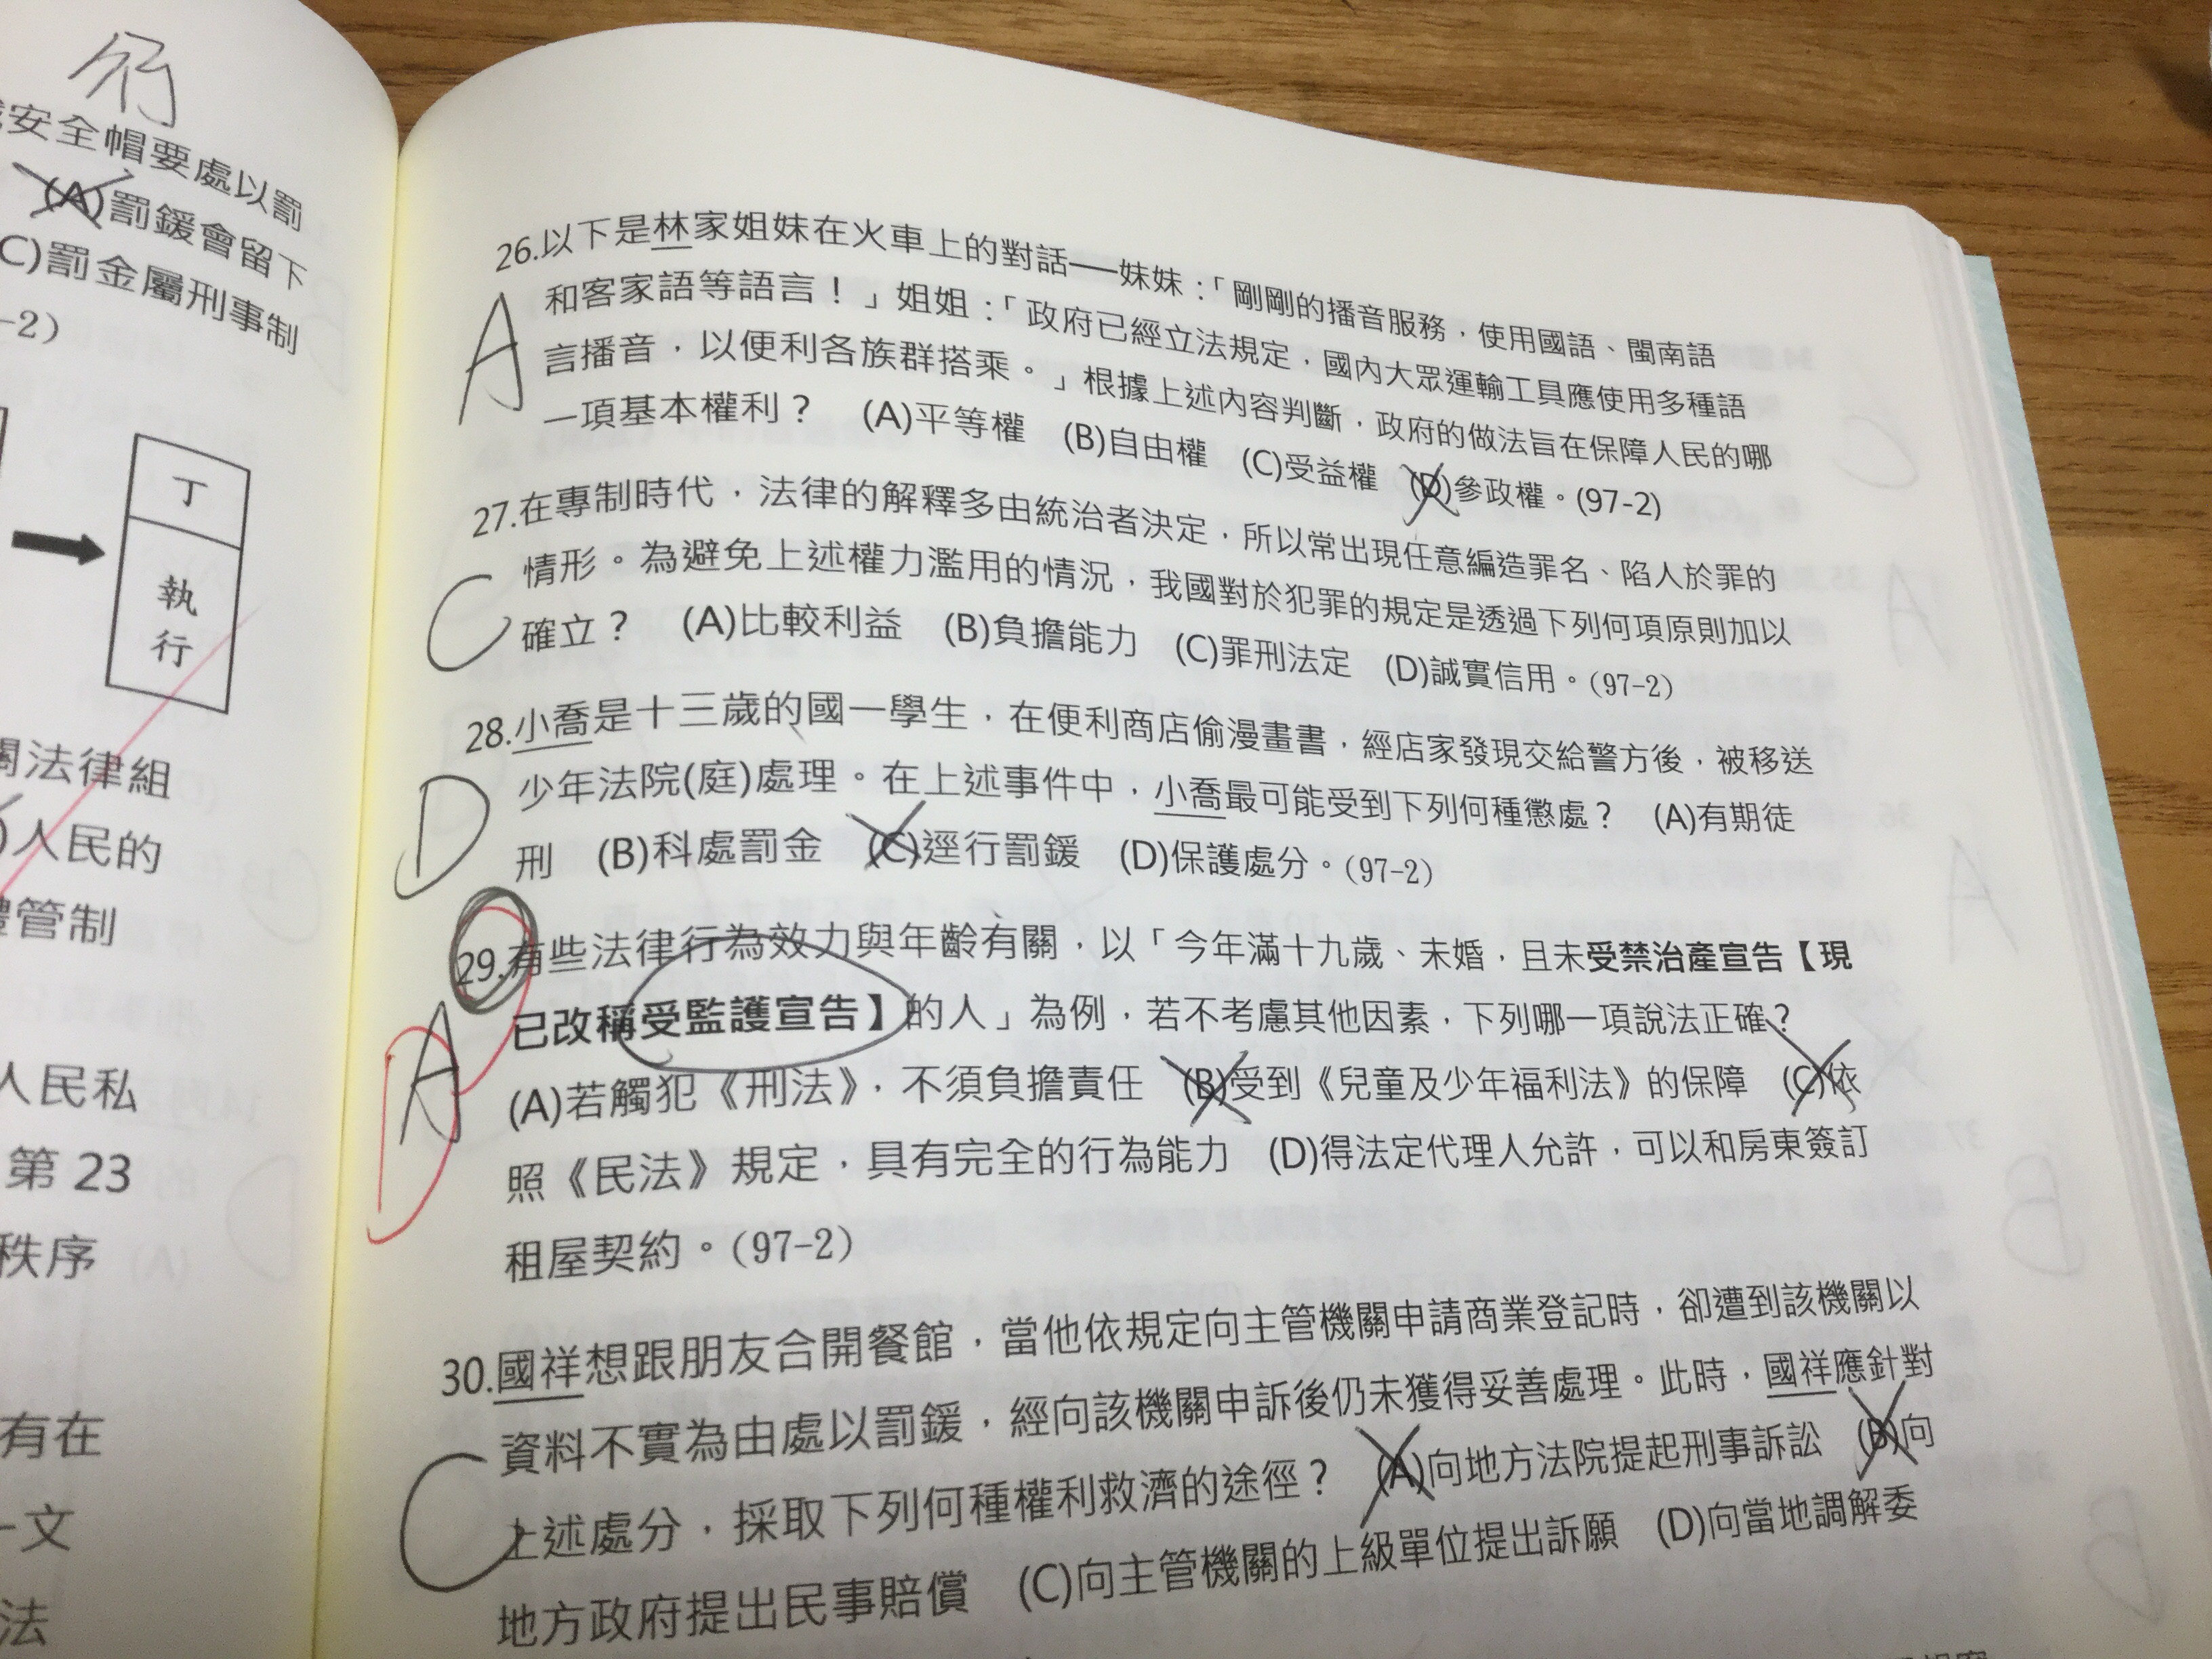 行
安全帽要處以罰
(A)罰鍰會留下
C)罰金屬刑事制
-2)
丁
執
行
法律組
)人民的
管制
人民私
第 23
秩序
有在
一文
法
26.以下是林家姐妹在火車上的對話──妹妹：「剛剛的播音服務，使用國語、閩南語
和客家語等語言！」姐姐：「政府已經立法規定，國內大眾運輸工具應使用多種語
言播音，以便利各族群搭乘。」根據上述內容判斷，政府的做法旨在保障人民的哪
一項基本權利？ (A)平等權 (B)自由權 (C)受益權 (D)參政權。(97-2)
A
27.在專制時代，法律的解釋多由統治者決定，所以常出現任意編造罪名、陷人於罪的
情形。為避免上述權力濫用的情況，我國對於犯罪的規定是透過下列何項原則加以
確立？ (A)比較利益 (B)負擔能力 (C)罪刑法定 (D)誠實信用。(97-2)
C
28.小喬是十三歲的國一學生，在便利商店偷漫畫書，經店家發現交給警方後，被移送
少年法院(庭)處理。在上述事件中，小喬最可能受到下列何種懲處？ (A)有期徒
刑 (B)科處罰金 (C)逕行罰鍰 (D)保護處分。(97-2)
D
29.有些法律行為效力與年齡有關，以「今年滿十九歲、未婚，且未受禁治產宣告【現
已改稱受監護宣告】的人」為例，若不考慮其他因素，下列哪一項說法正確？
(A)若觸犯《刑法》，不須負擔責任 (B)受到《兒童及少年福利法》的保障 (C)依
照《民法》規定，具有完全的行為能力 (D)得法定代理人允許，可以和房東簽訂
租屋契約。(97-2)
A
D
30.國祥想跟朋友合開餐館，當他依規定向主管機關申請商業登記時，卻遭到該機關以
資料不實為由處以罰鍰，經向該機關申訴後仍未獲得妥善處理。此時，國祥應針對
上述處分，採取下列何種權利救濟的途徑？ (A)向地方法院提起刑事訴訟 (B)向
地方政府提出民事賠償 (C)向主管機關的上級單位提出訴願 (D)向當地調解委
C